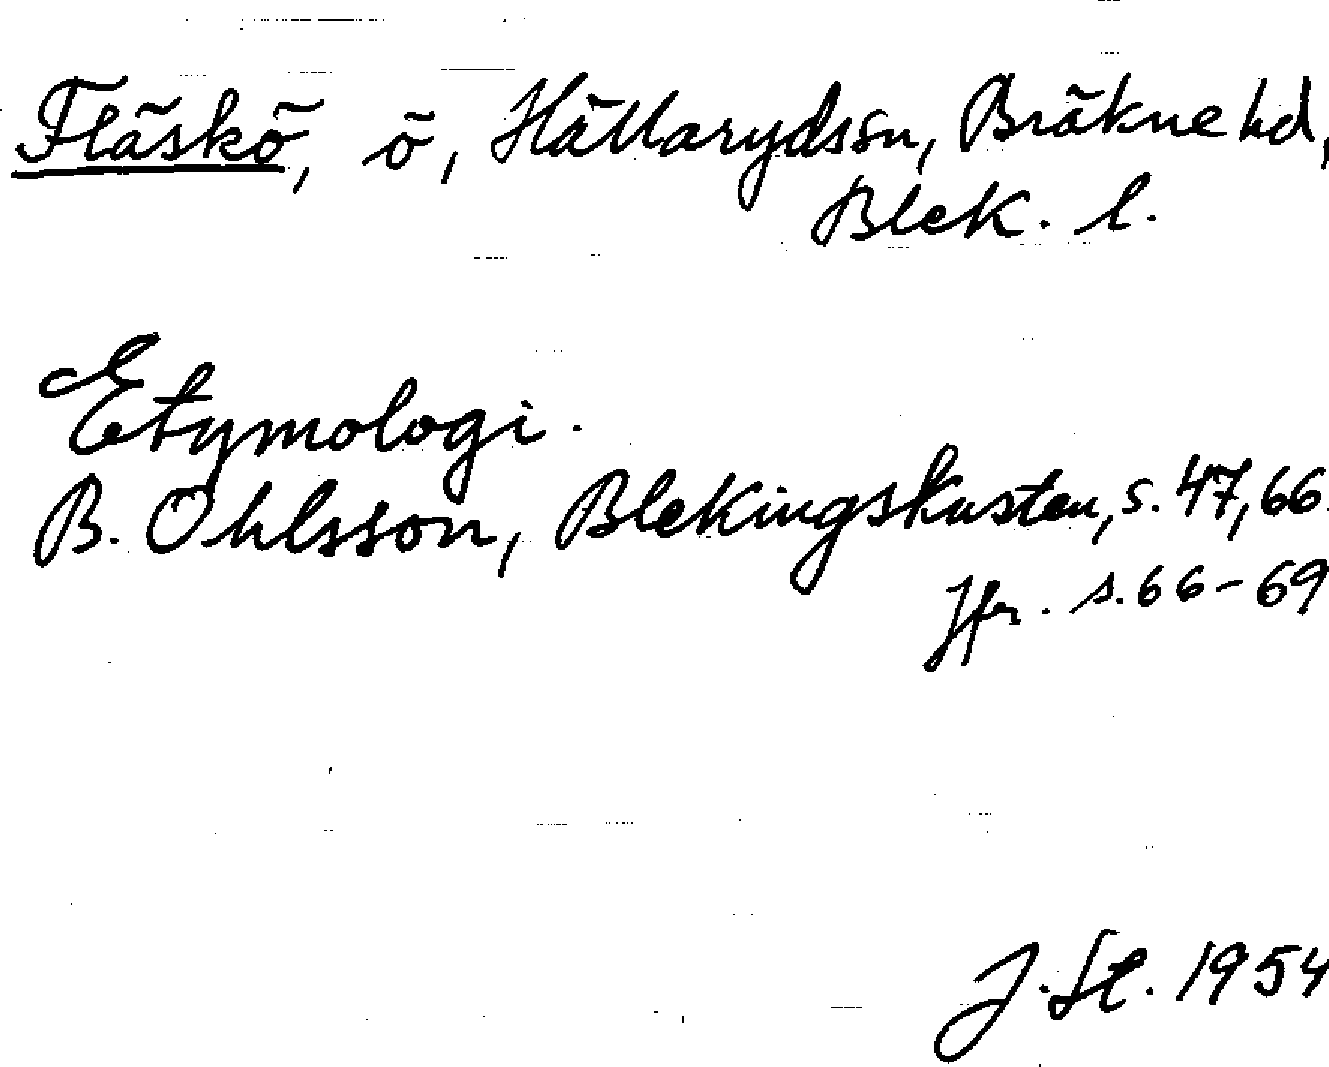 Fläskö, ö, Hällarydssn, Bräkne hd,
Blek. l.
Etymologi.
B. Ohlsson, Blekingskusten, s. 47, 66.
Jfr. s. 66-69
J. St. 1954